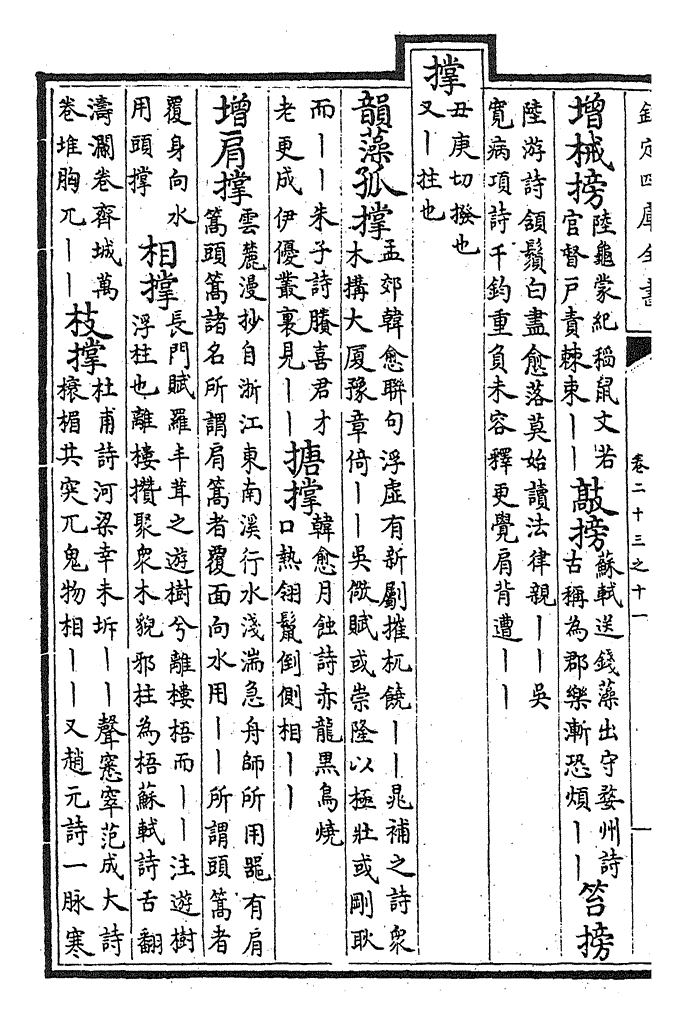 欽定四庫全書 卷二十三之十一 一
增械搒
陸龜蒙紀稻鼠文若
官督戶責棘束｜｜
敲搒
蘇軾送錢藻出守婺州詩
古稱為郡樂漸恐煩｜｜
笞搒
陸游詩頷鬚白盡愈落莫始讀法律親｜｜吳
寛病項詩千鈞重負未容釋更覺肩背遭｜｜
撑
丑庚切撥也
又｜拄也
韻藻孤撑
孟郊韓愈聯句浮虛有新劚摧杌饒｜｜晁補之詩衆
木搆大厦豫章倚｜｜吳儆賦或崇隆以極壯或剛耿
而｜｜朱子詩賸喜君才
老更成伊優叢裏見｜｜
搪撑
韓愈月蝕詩赤龍黒鳥燒
口熱翎鬛倒側相｜｜
增肩撑
雲麓漫抄自浙江東南溪行水淺湍急舟師所用器有肩
篙頭篙諸名所謂肩篙者覆面向水用｜｜所謂頭篙者
覆身向水
用頭撑
相撑
長門賦羅丰茸之遊樹兮離樓梧而｜｜注遊樹
浮柱也離樓攢聚衆木貌邪柱為梧蘇軾詩舌翻
濤瀾卷齊城萬
卷堆胸兀｜｜
枝撑
杜甫詩河梁幸未坼｜｜聲窸窣范成大詩
榱楣共突兀鬼物相｜｜又趙元詩一脉寒